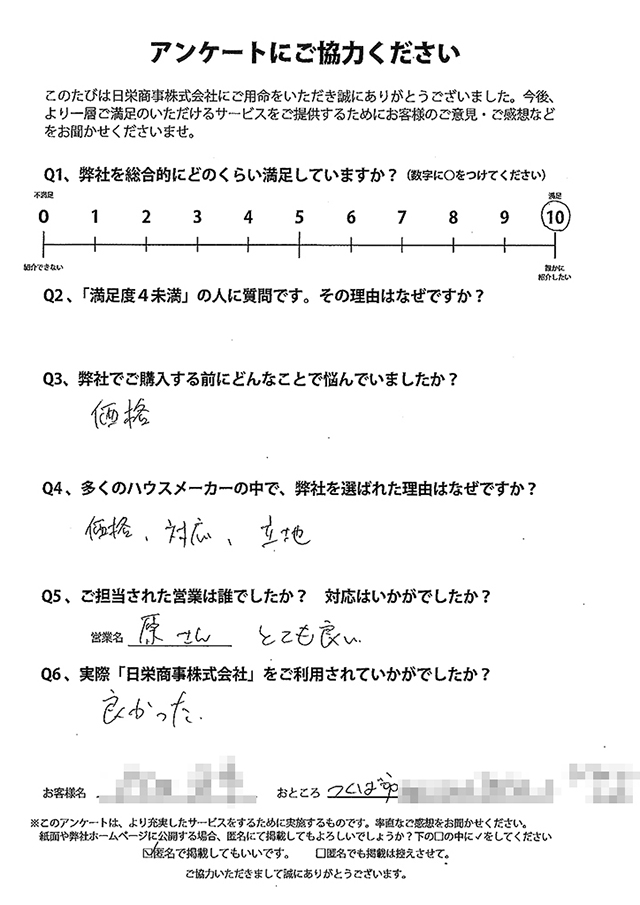 アンケートにご協力ください
このたびは日栄商事株式会社にご用命をいただき誠にありがとうございました。今後、
より一層ご満足のいただけるサービスをご提供するためにお客様のご意見・ご感想など
をお聞かせくださいませ。
Q1、弊社を総合的にどのくらい満足していますか？（数字に〇をつけてください）
不満足 満足
0 1 2 3 4 5 6 7 8 9 10
紹介できない 誰かに
紹介したい
Q2、「満足度４未満」の人に質問です。その理由はなぜですか？
Q3、弊社でご購入する前にどんなことで悩んでいましたか？
価格
Q4、多くのハウスメーカーの中で、弊社を選ばれた理由はなぜですか？
価格、対応、立地
Q5、ご担当された営業は誰でしたか？　対応はいかがでしたか？
営業名 原さん とても良い.
Q6、実際「日栄商事株式会社」をご利用されていかがでしたか？
良かった.
お客様名 おところ つくば市
※このアンケートは、より充実したサービスをするために実施するものです。率直なご感想をお聞かせください。
紙面や弊社ホームページに公開する場合、匿名にて掲載してもよろしいでしょうか？下の□の中に✓をしてください
☑匿名で掲載してもいいです。　□匿名でも掲載は控えさせて。
ご協力いただきまして誠にありがとうございます。